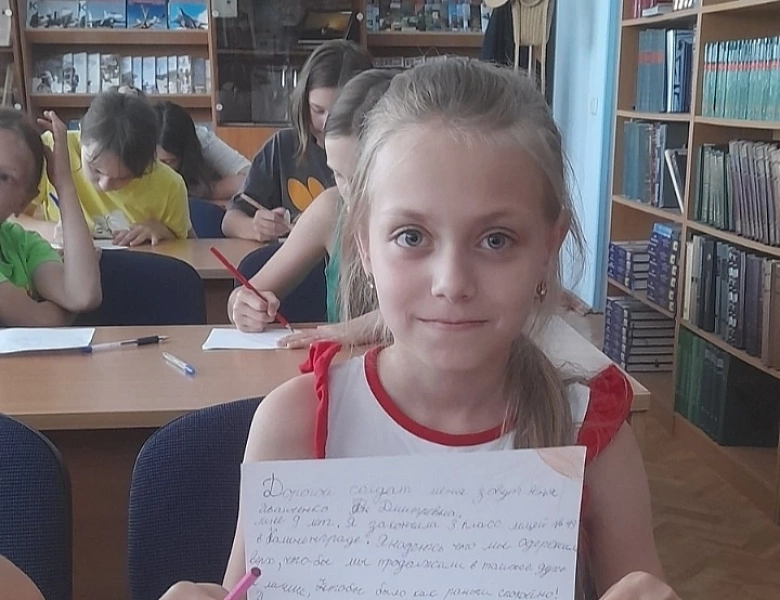 Дорогой солдат меня зовут
Дмитриевна.
мне 9 лет. Я закончила 3 класс лицей № 49
в Калининграде. Я надеюсь что мы одержим
верх, чтобы мы продолжали в таком же духе
чтобы было как раньше спокойно!